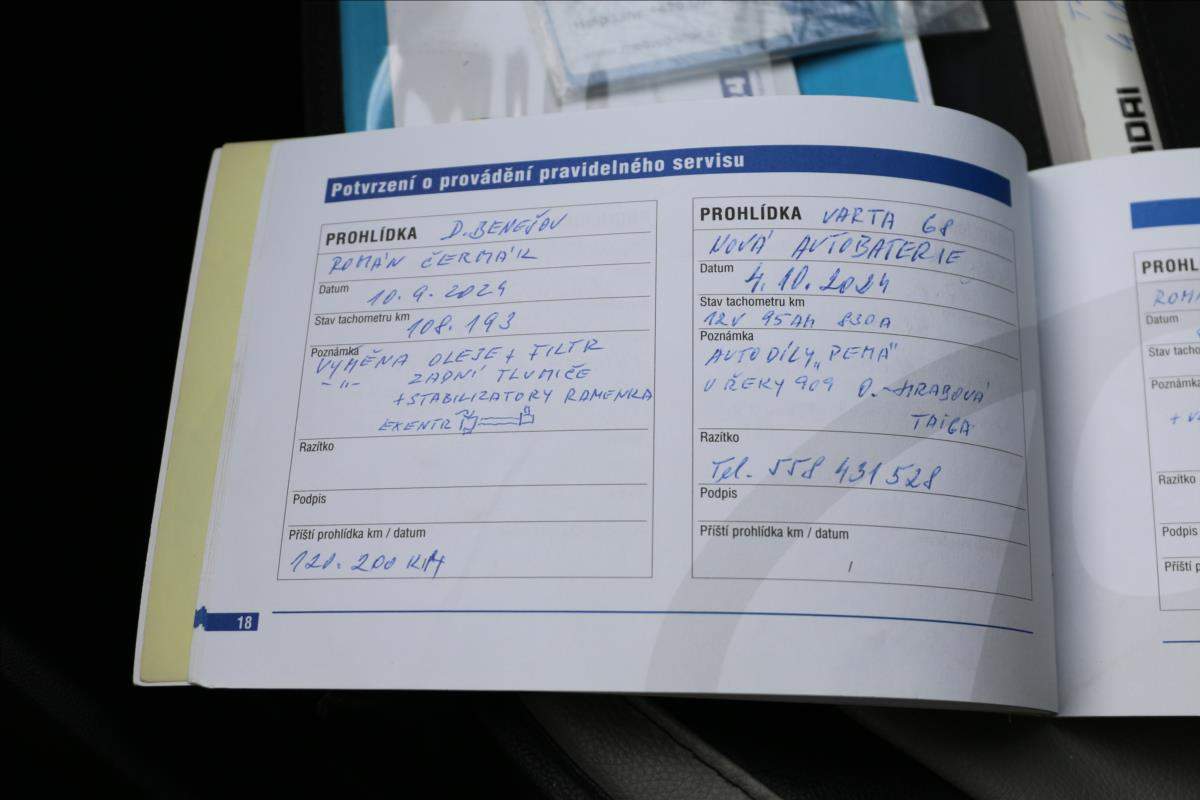 Potvrzení o provádění pravidelného servisu
PROHLÍDKA D. BENEŠOV
ROMÁN ČERMÁK
Datum 10. 9. 2024
Stav tachometru km 108. 193
Poznámka
VÝMĚNA OLEJE + FILTR
- " - ZADNÍ TLUMIČE
+ STABILIZATORY RAMENKA
EXENTR
Razítko
Podpis
Příští prohlídka km / datum
120. 200 KM
PROHLÍDKA VARTA G8
NOVÁ AUTOBATERIE
Datum 4. 10. 2024
Stav tachometru km
12V 95AH 830A
Poznámka
AUTODÍLY „PEMA"
U ŘEKY 909 O. - HRABOVÁ
TAIGA
Razítko
Tel. 558 431 528
Podpis
Příští prohlídka km / datum
/
18
PROHL
ROMA
Datum
Stav tacho
Poznámka
Razítko
Podpis
Příští p